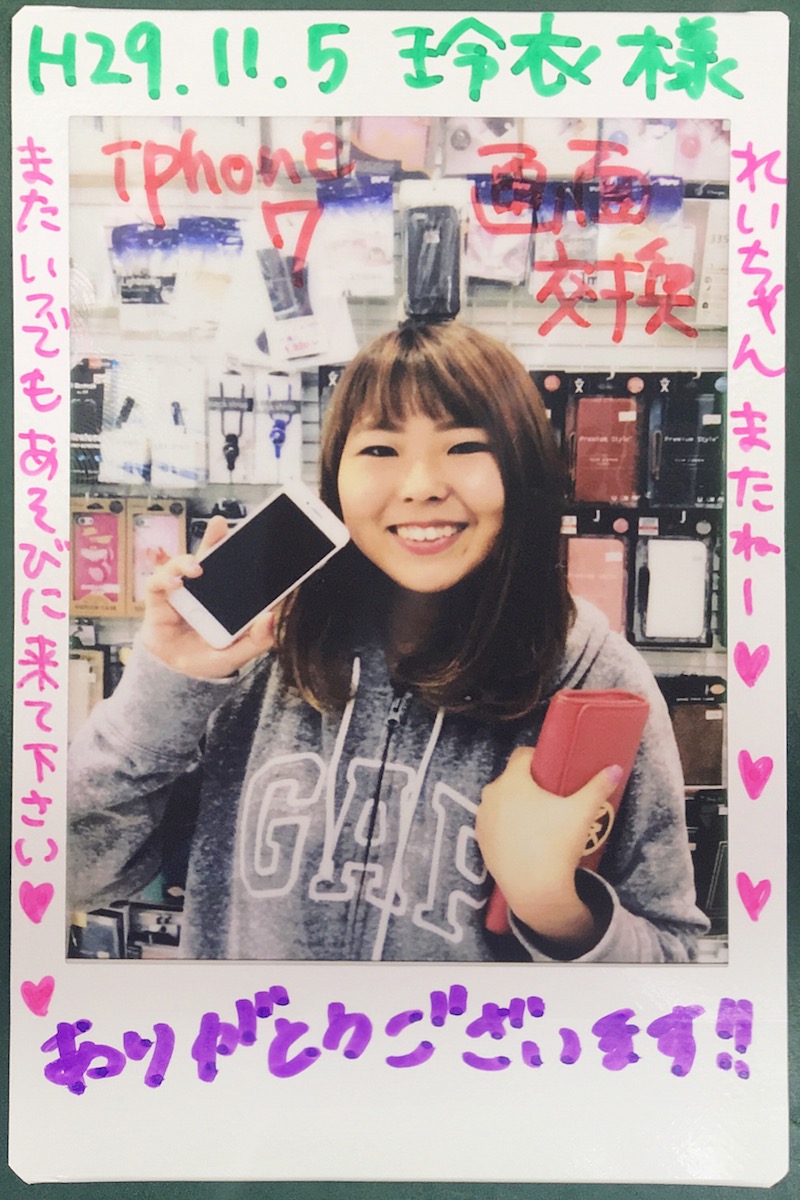 H29.11.5 玲衣様
iphone
7
画面
交換
れいちゃん またねー♥♥♥
また いつでも あそびに来て下さい♥♥
GAP
Premium Style
Premium Style
ありがとうございます!!